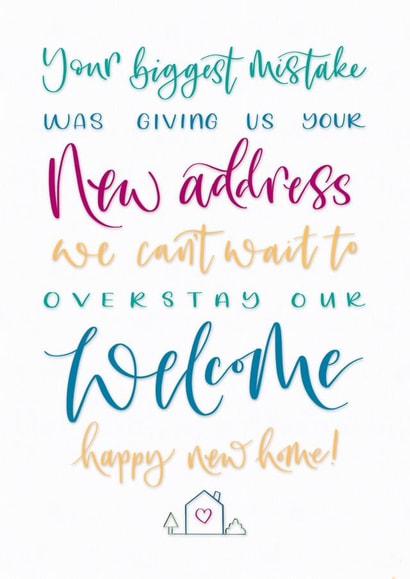 Your biggest mistake
WAS GIVING US YOUR
New address
we can't wait to
OVERSTAY OUR
Welcome
happy new home!